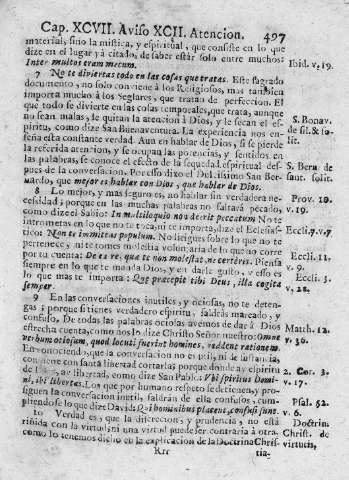 Cap. XCVII. Aviso XCII. Atencion. 497
material, sino la mistica, y espiritual, que consiste en lo que
dize en el lugar yà citado, de saber estàr solo entre muchos: Ibid. v. 19.
Inter multos eram mecum.
7 No te diviertas todo en las cosas que tratas. Este sagrado
documento, no solo conviene à los Religiosos, mas tambien
importa mucho à los Seglares, que tratan de perfeccion. El
que todo se divierte en las cosas temporales, que trata, aunque
no sean malas, le quitan la atencion à Dios, y le secan el es- S. Bonav.
piritu, como dize San Buenaventura. La experiencia nos en- de sil. & so-
seña esta constante verdad. Aun en hablar de Dios, si se pierde lit.
la referida atencion, y se ocupan las potencias, y sentidos en
las palabras, se conoce el efecto de la sequedad espiritual des- S. Bern. de
pues de la conversacion. Por esso dixo el Dulcissimo San Ber- solit.
nardo, que mejor es hablar con Dios, que hablar de Dios.
8 Lo mejor, y mas seguro es, no hablar sin verdadera ne- Prov. 10.
cessidad; porque en las muchas palabras no faltarà pecado, v. 19.
como dize el Sabio: In multiloquio non deerit peccatum. No te
intrometas en lo que no te toca, ni te importa, dize el Eclesias- Eccli. 7. v. 7
tico: Non te immittas in populum. No litigues sobre lo que no te
pertenece, ni te tomes molestia voluntaria de lo que no corre Eccli. 11.
por tu cuenta: De ea re, quæ te non molestat, ne certeris. Piensa v. 9.
siempre en lo que te manda Dios, y en darle gusto, y esso es Eccli. 3.
lo que mas te importa: Quæ præcepit tibi Deus, illa cogita v. 22.
semper.
9 En las conversaciones inutiles, y ociosas, no te deten-
gas; porque si tienes verdadero espiritu, saldràs mareado, y
confuso. De todas las palabras ociosas avemos de dàr à Dios
estrecha cuenta, como nos lo dize Christo Señor nuestro: Omne Matth. 12.
verbum otiosum, quod locuti fuerint homines, reddent rationem. v. 36.
En conociendo, que la conversacion no es util, ni de sustancia,
conviene con santa libertad cortarla; porque donde ay espiritu
de Dios, ay libertad, como dize San Pablo: Ubi spiritus Domi- 2. Cor. 3.
ni, ibi libertas. Los que por humano respeto se detienen, y pro- v. 17.
siguen la conversacion inutil, saldràn de ella confusos, cum-
pliendose lo que dize David: Qui hominibus placent, confusi sunt. Psal. 52.
v. 6.
10 Verdad es, que la discrecion, y prudencia, no està Doctrin.
reñida con la virtud, ni una virtud puede ser contraria à otra, Christ. de
como lo tenemos dicho en la explicacion de la Doctrina Chris- virtutis,
Rrr tia-